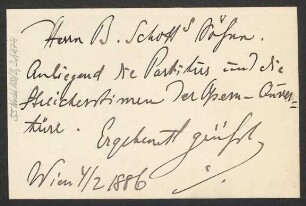 Herrn B. Schott's Söhne.
Anliegend die Partitur und die
Streicherstimmen der Opern-Ouver-
türe.
Ergebenst grüßt
Wien 4/2 1886